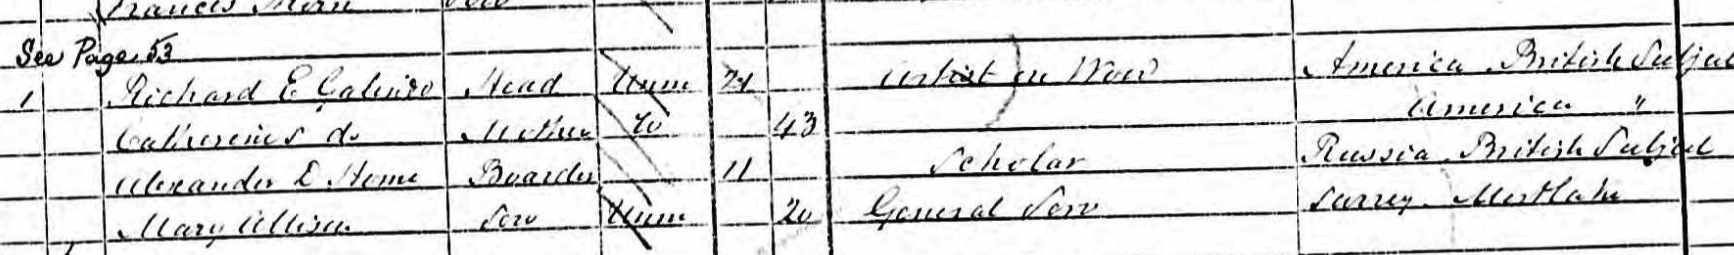 Francis Serv
See Page 53
1 Richard E Galindo Head Unm 21 Artist in Wood America British Subject
Catherine S do Mother W 43 America "
Alexander D Home Boarder 11 Scholar Russia British Subject
Mary Allison Serv Unm 20 General Serv Surrey Mortlake